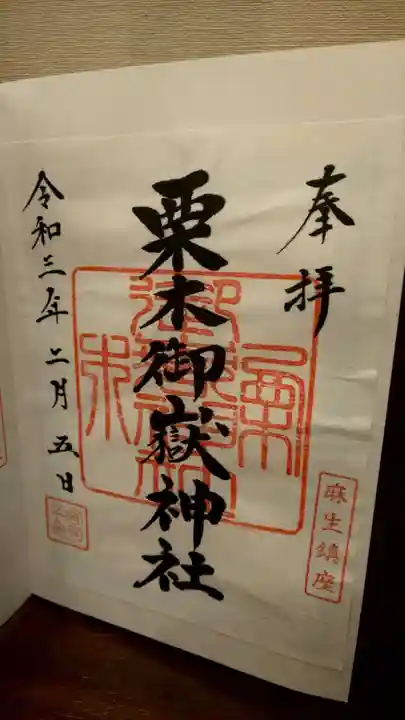 奉拝
麻生鎮座
栗木御嶽神社
令和三年二月五日